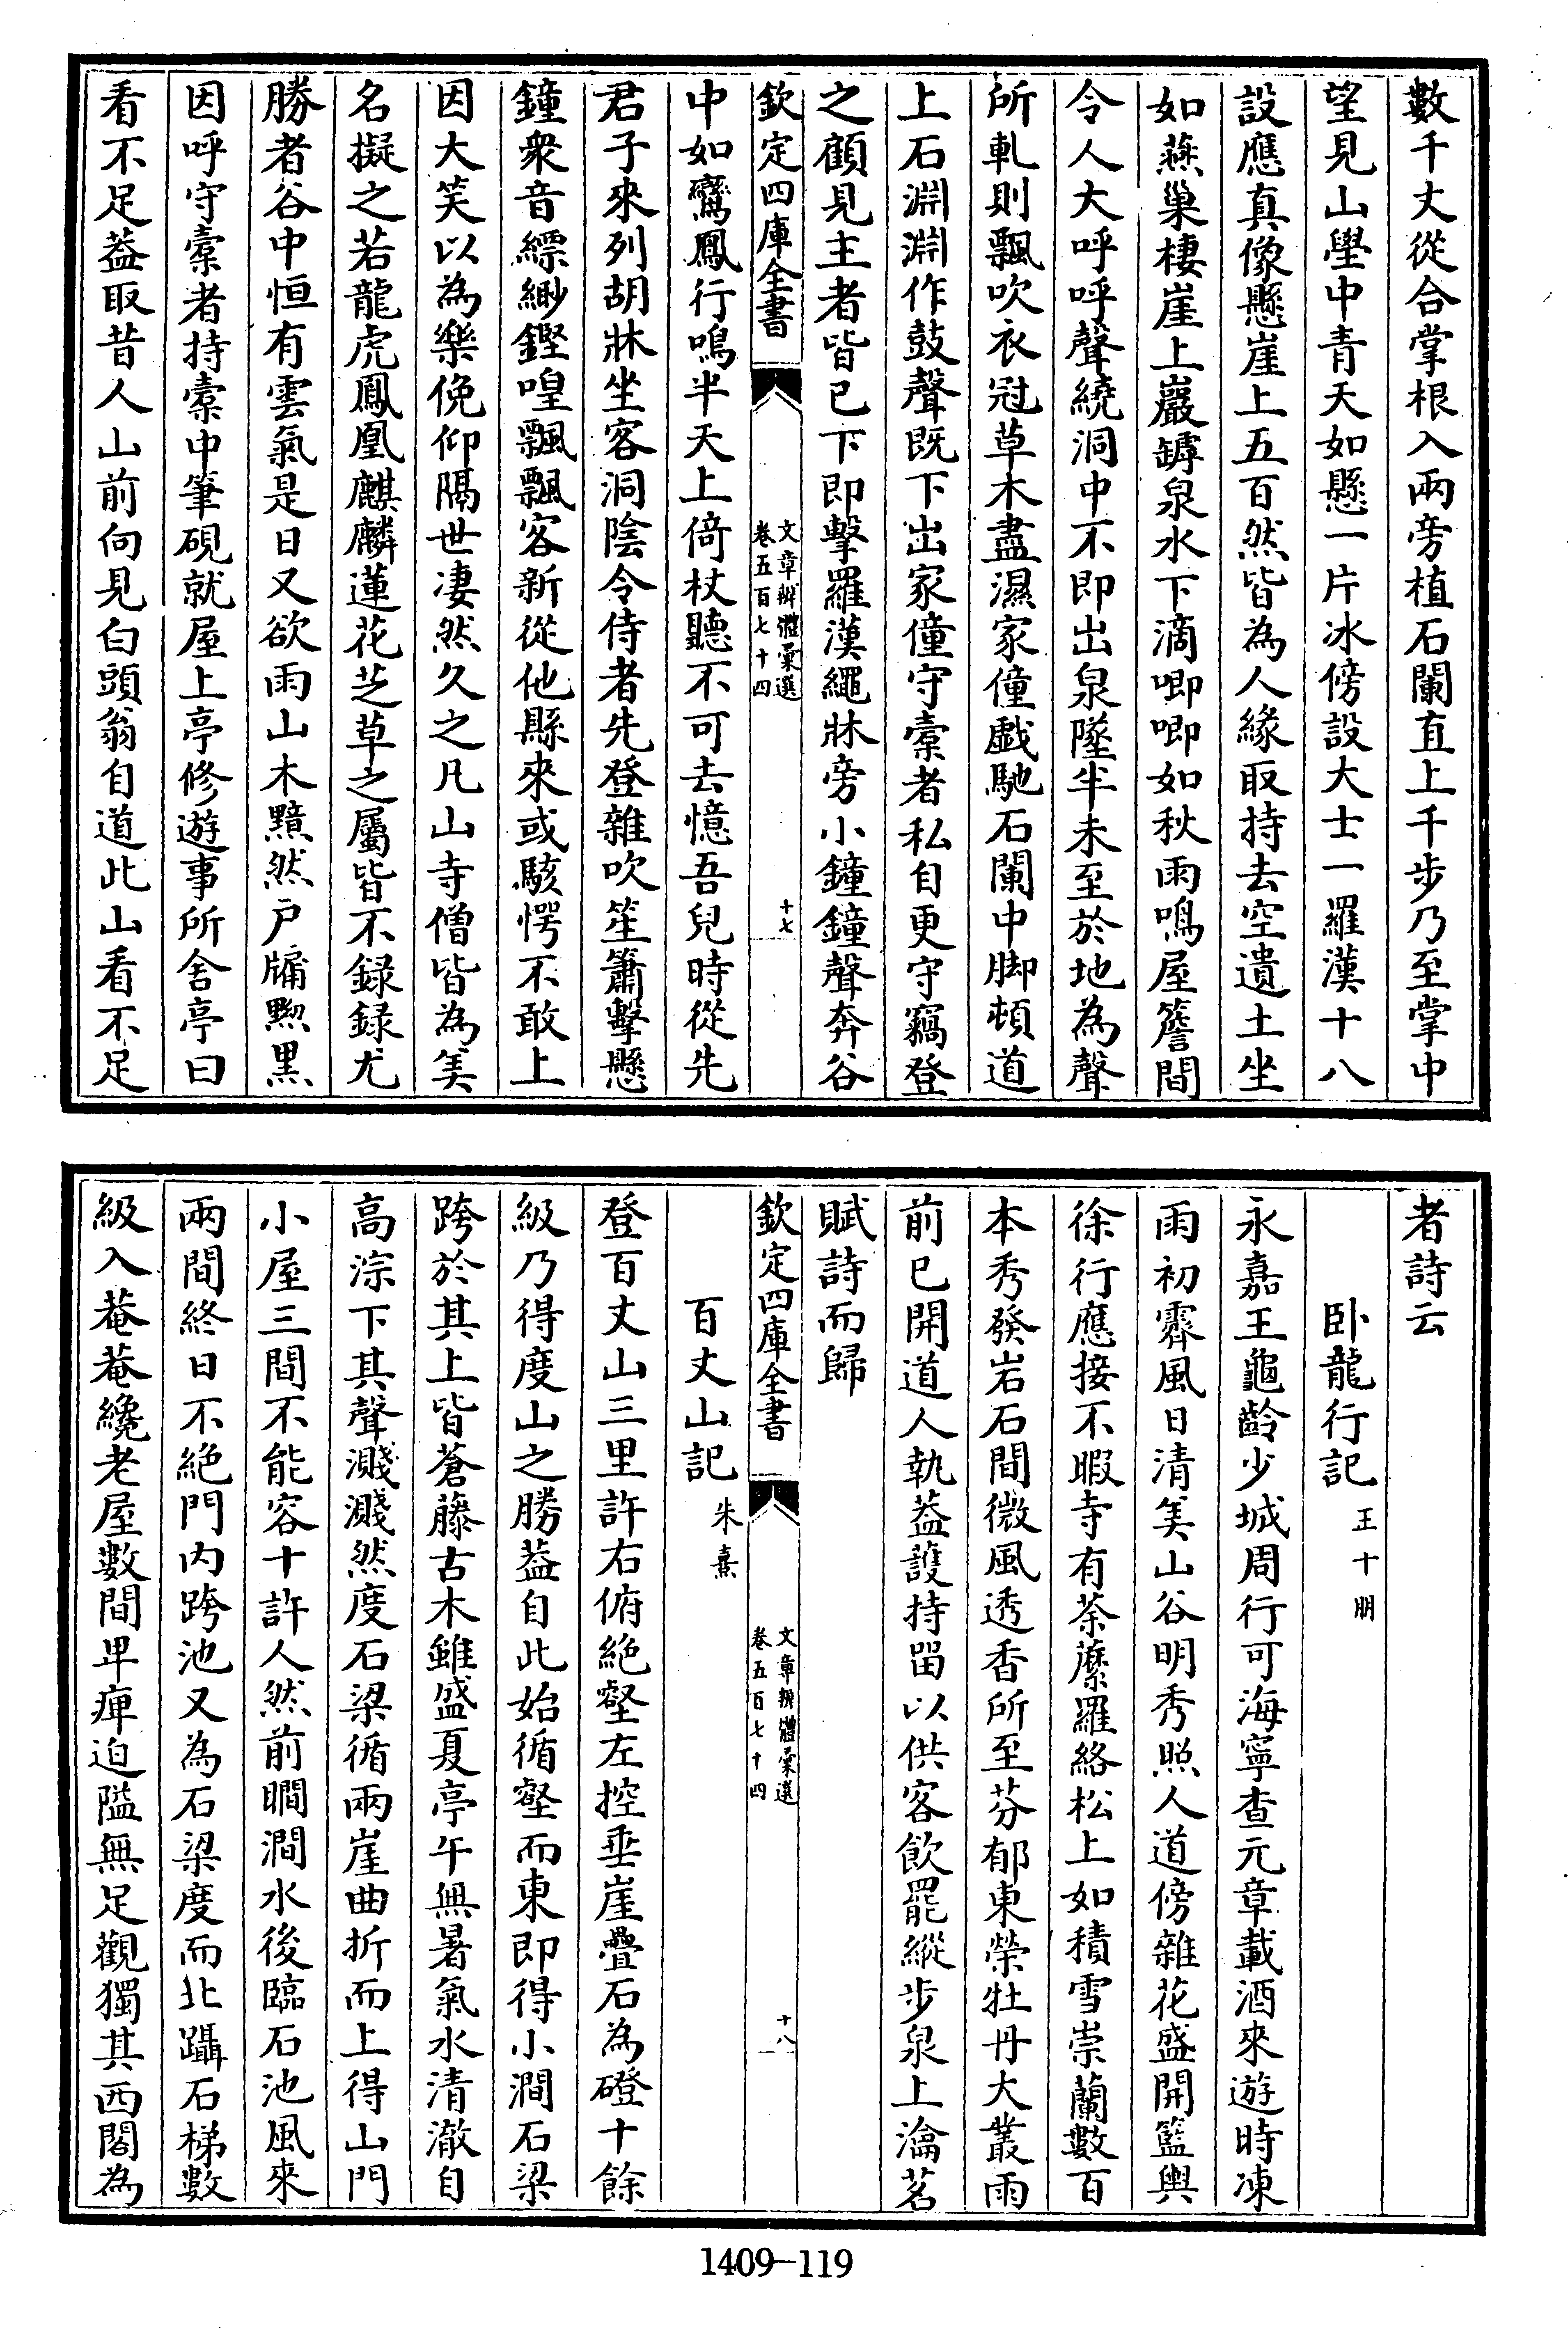 數千丈從合掌根入兩旁植石闌直上千步乃至掌中
望見山壂中青天如懸一片冰傍設大士一羅漢十八
設應真像懸崖上五百然皆為人緣取持去空遺土坐
如燕巢棲崖上巖罅泉水下滴唧唧如秋雨鳴屋簷間
令人大呼呼聲繞洞中不即出泉墜半未至於地為聲
所軋則飄吹衣冠草木盡濕家僮戲馳石闌中脚頓道
上石淵淵作鼓聲既下出家僮守槖者私自更守竊登
之顧見主者皆已下即擊羅漢繩牀旁小鐘鐘聲奔谷
欽定四庫全書
文章辨體彙選
卷五百七十四
十七
中如鸞鳳行鳴半天上倚杖聽不可去憶吾兒時從先
君子來列胡牀坐客洞陰令侍者先登雜吹笙簫擊懸
鐘衆音縹緲鏗喤飄飄客新從他縣來或駭愕不敢上
因大笑以為樂俛仰隔世凄然久之凡山寺僧皆為美
名擬之若龍虎鳳凰麒麟蓮花芝草之屬皆不録録尤
勝者谷中恒有雲氣是日又欲雨山木黯然户牖黝黒
因呼守槖者持槖中筆硯就屋上亭修遊事所舍亭曰
看不足葢取昔人山前向見白頭翁自道此山看不足
者詩云
卧龍行記
王十朋
永嘉王龜齡少城周行可海寧查元章載酒來遊時凍
雨初霽風日清美山谷明秀照人道傍雜花盛開籃輿
徐行應接不暇寺有荼蘼羅絡松上如積雪崇蘭數百
本秀發岩石間微風透香所至芬郁東榮牡丹大叢雨
前已開道人執葢護持留以供客飲罷縱步泉上瀹茗
賦詩而歸
欽定四庫全書
文章辨體彙選
卷五百七十四
十八
百丈山記
朱熹
登百丈山三里許右俯絶壑左控垂崖疊石為磴十餘
級乃得度山之勝葢自此始循壑而東即得小澗石梁
跨於其上皆蒼藤古木雖盛夏亭午無暑氣水清澈自
高淙下其聲濺濺然度石梁循兩崖曲折而上得山門
小屋三間不能容十許人然前瞷澗水後臨石池風來
兩間終日不絶門内跨池又為石梁度而北躡石梯數
級入菴菴纔老屋數間卑痺迫隘無足觀獨其西閣為
1409—119